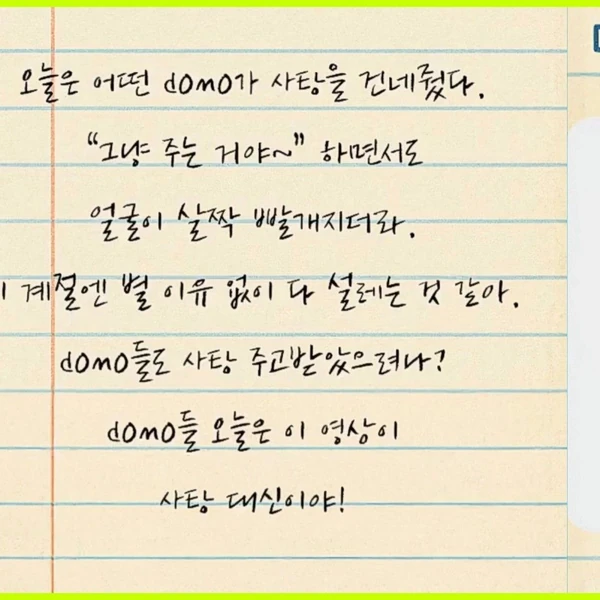 오늘은 어떤 domo가 사탕을 건네줬다.
“그냥 주는 거야~” 하면서도
얼굴이 살짝 빨개지더라.
계절엔 별 이유 없이 다 설레는 것 같아.
domo들도 사탕 주고받았으려나?
domo들 오늘은 이 영상이
사탕 대신이야!